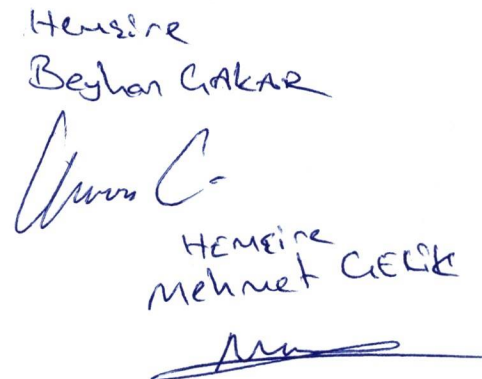 Hemşire
Beyhan ÇAKAR
HEMŞİRE
Mehmet ÇELİK